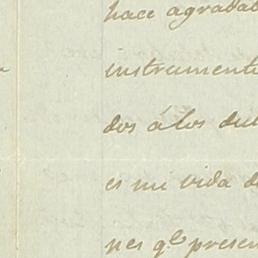 hace agradab
instrumento
dos á los du
es mi vida d
nes q.e presen